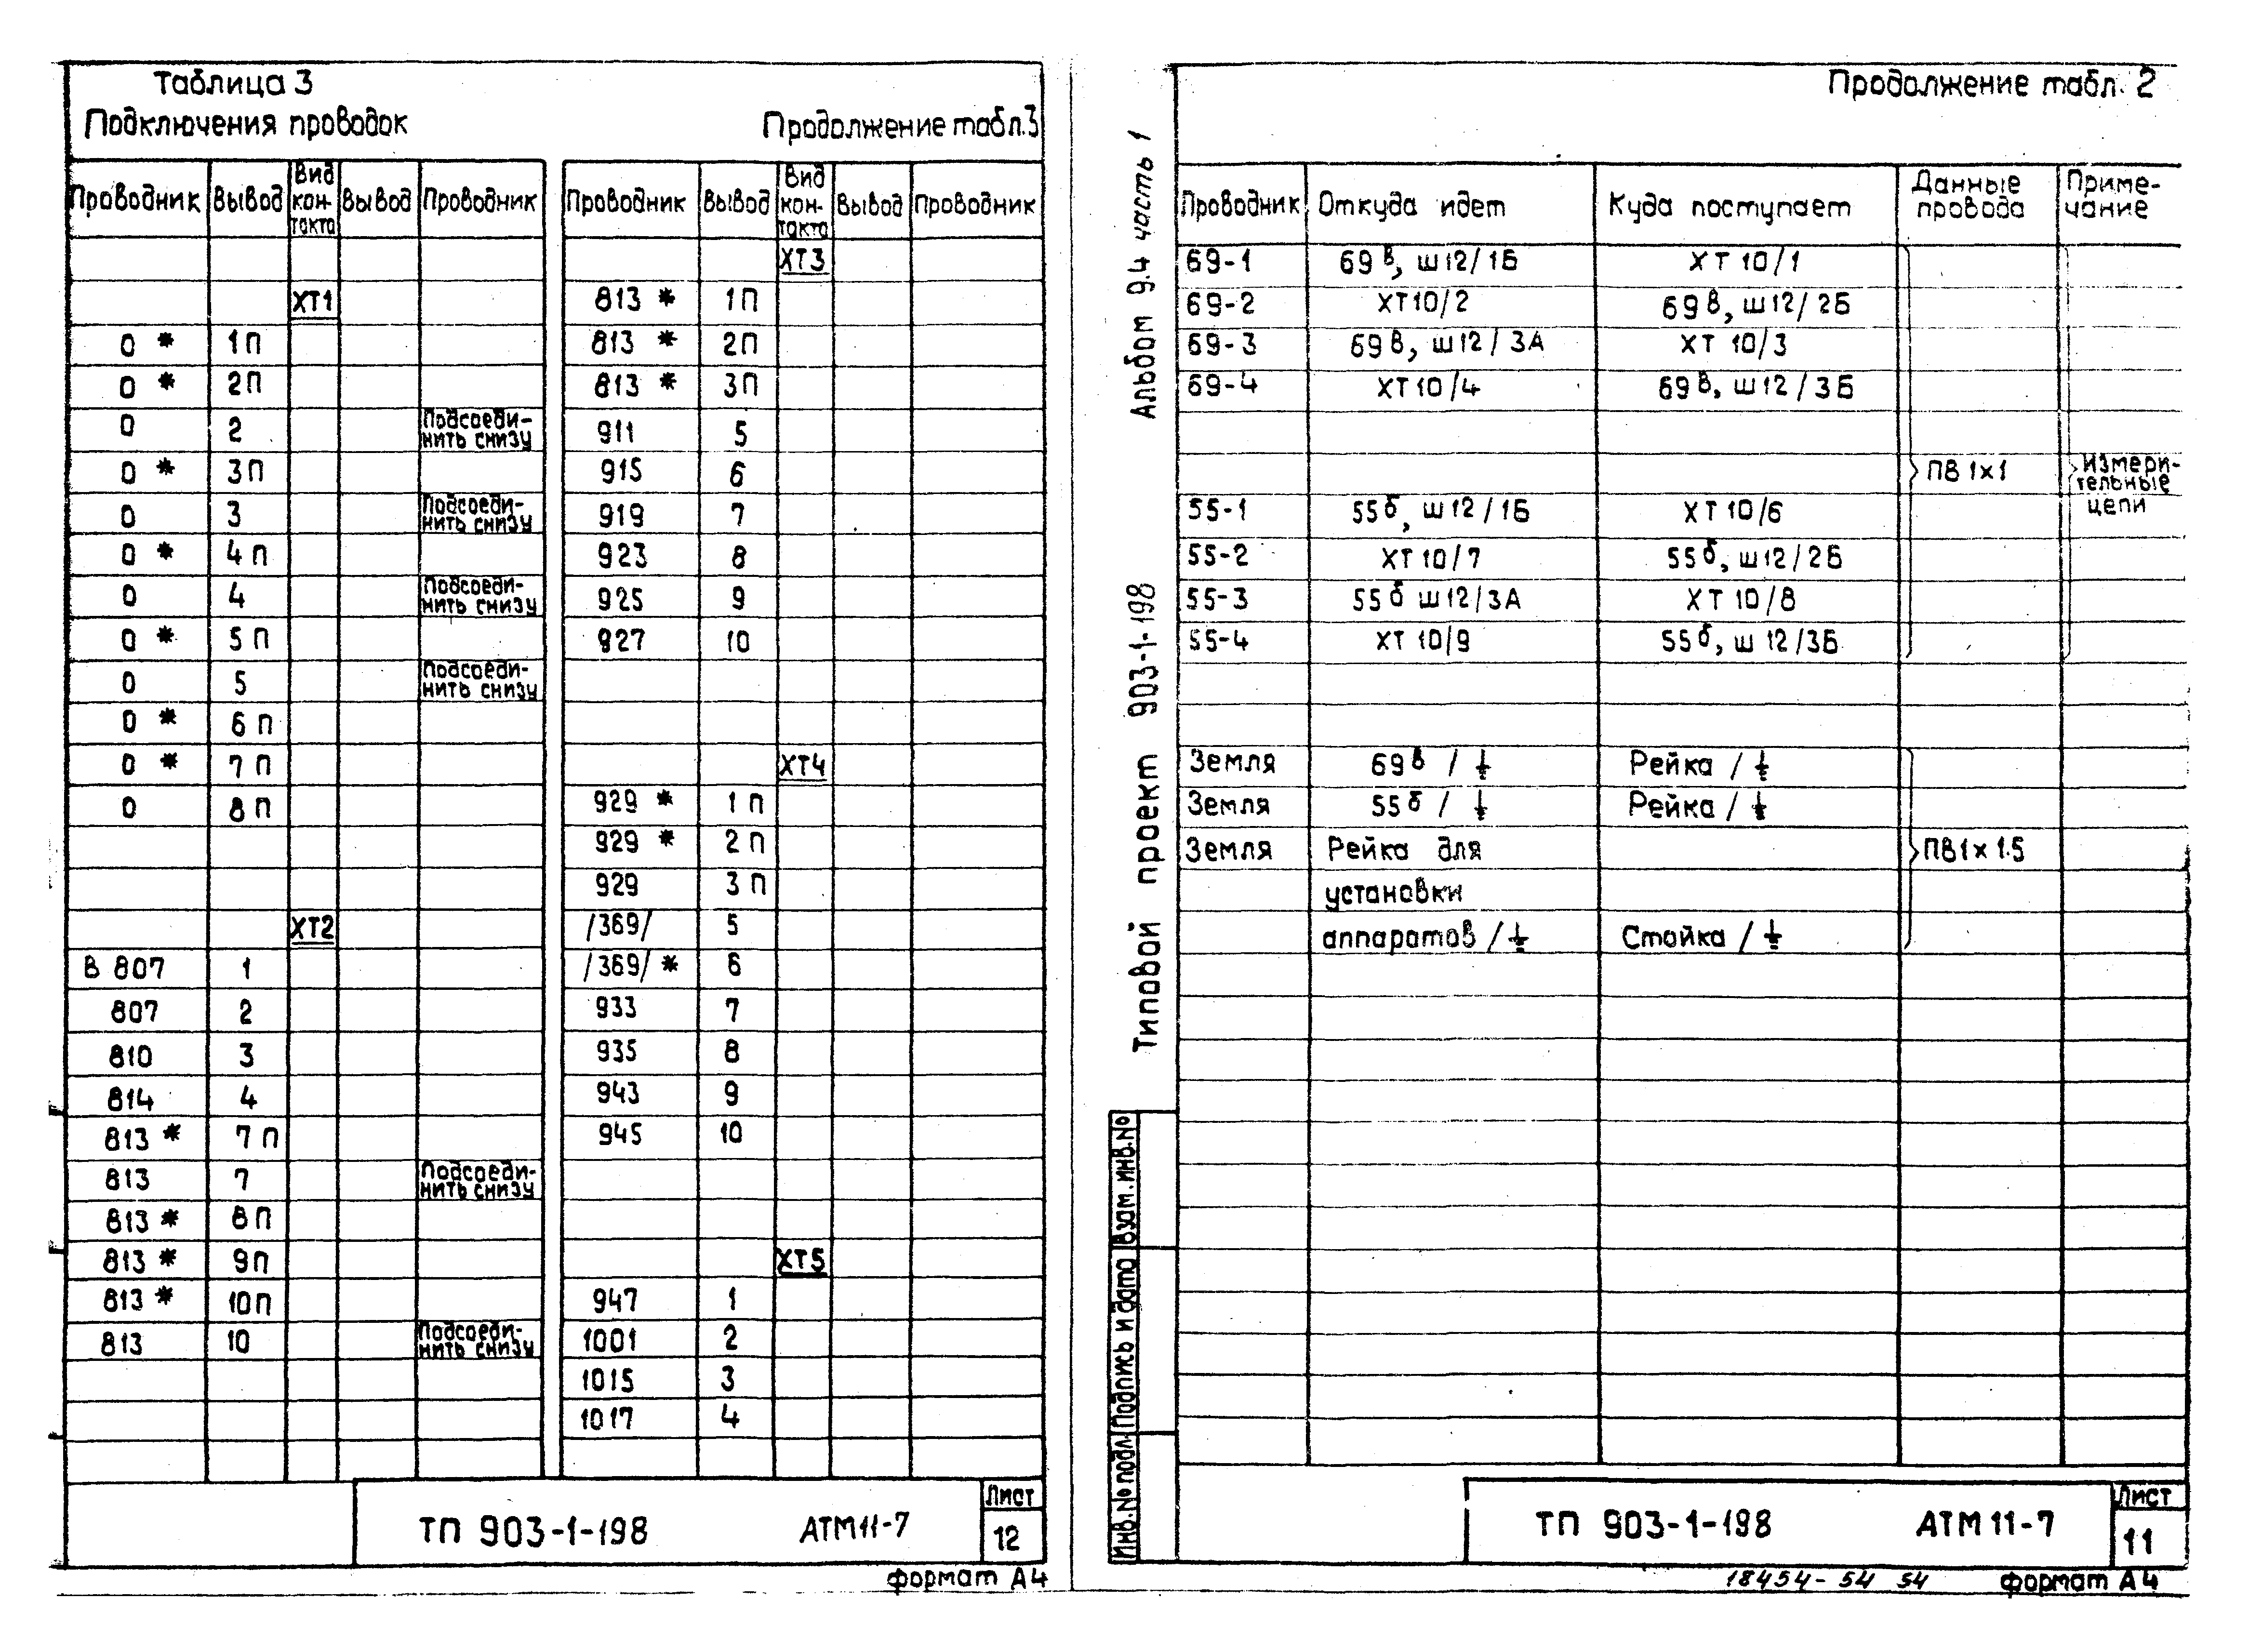 Таблица 3
Подключения проводок
Проводник Вывод Вид кон-такта Вывод Проводник
ХТ1
0 * 1П
0 * 2П
0 2 Подсоеди-нить снизу
0 * 3П
0 3 Подсоеди-нить снизу
0 * 4П
0 4 Подсоеди-нить снизу
0 * 5П
0 5 Подсоеди-нить снизу
0 * 6П
0 * 7П
0 8П
ХТ2
В 807 1
807 2
810 3
814 4
813 * 7П
813 7 Подсоеди-нить снизу
813 * 8П
813 * 9П
813 * 10П
813 10 Подсоеди-нить снизу
Продолжение табл.3
Проводник Вывод Вид кон-такта Вывод Проводник
ХТ3
813 * 1П
813 * 2П
813 * 3П
911 5
915 6
919 7
923 8
925 9
927 10
ХТ4
929 * 1П
929 * 2П
929 3П
/369/ 5
/369/ * 6
933 7
935 8
943 9
945 10
ХТ5
947 1
1001 2
1015 3
1017 4
ТП 903-1-198 АТМ11-7
Лист
12
формат А4
Альбом 9.4 часть 1
Типовой проект 903-1-198
Инв.№ подл. Подпись и дата Взам.инв.№
Продолжение табл. 2
Проводник Откуда идет Куда поступает Данные провода Приме-чание
69-1 69в, ш12/1Б ХТ10/1
69-2 ХТ10/2 69в, ш12/2Б
69-3 69в, ш12/3А ХТ10/3
69-4 ХТ10/4 69в, ш12/3Б
ПВ 1х1 Измери-тельные цепи
55-1 55б, ш12/1Б ХТ10/6
55-2 ХТ10/7 55б, ш12/2Б
55-3 55б ш12/3А ХТ10/8
55-4 ХТ10/9 55б, ш12/3Б
Земля 69в / ⏚ Рейка / ⏚
Земля 55б / ⏚ Рейка / ⏚
Земля Рейка для ПВ1х1.5
установки
аппаратов / ⏚ Стойка / ⏚
ТП 903-1-198 АТМ11-7
Лист
11
18454-54 54 формат А4